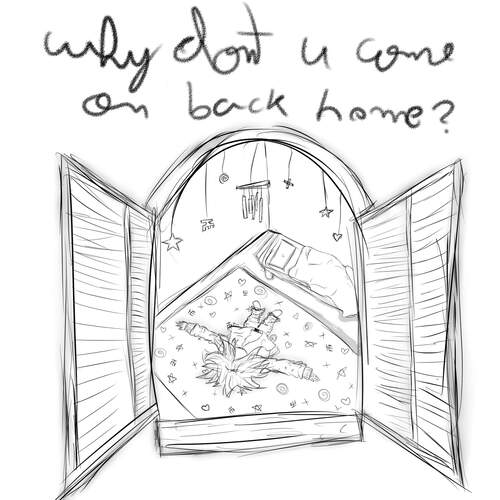 why don't u come
on back home?